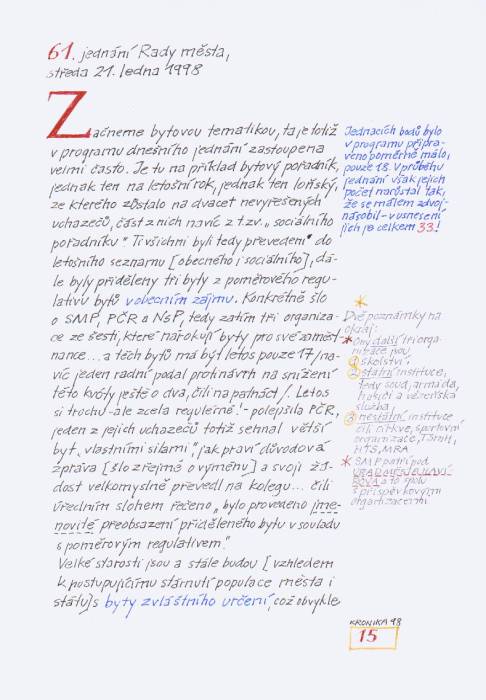 61. jednání Rady města,
středa 21. ledna 1998
Začneme bytovou tematikou, ta je totiž
v programu dnešního jednání zastoupena
velmi často. Je tu na příklad bytový pořadník,
jednak ten na letošní rok, jednak ten loňský,
ze kterého zůstalo na dvacet nevyřešených
uchazečů, část z nich navíc z t.zv. „sociálního
pořadníku". Ti všichni byli tedy převedeni do
letošního seznamu [obecného i sociálního], dá-
le byly přiděleny tři byty z poměrového regu-
lativu bytů v obecním zájmu. Konkrétně šlo
o SMP, PČR a NsP, tedy zatím tři organiza-
ce ze šesti, které nárokují byty pro své zaměst-
nance... a těch bytů má být letos pouze 17 /na-
víc jeden radní podal protinávrh na snížení
této kvóty ještě o dva, čili na patnáct/. Letos
si trochu - ale zcela regulérně! - polepšila PČR,
jeden z jejich uchazečů totiž sehnal větší
byt „vlastními silami", jak praví důvodová
zpráva [šlo zřejmě o výměnu] a svoji žá-
dost velkomyslně převedl na kolegu... čili
úředním slohem řečeno „bylo provedeno jme-
novité přeobsazení přiděleného bytu v souladu
s poměrovým regulativem."
Velké starosti jsou a stále budou [vzhledem
k postupujícímu stárnutí populace města i
státu] s byty zvláštního určení, což obvykle
Jednacích bodů bylo
v programu připra-
veno poměrně málo,
pouze 18. V průběhu
jednání však jejich
počet narůstal tak,
že se málem zdvoj-
násobil - v usnesení
jich je celkem 33!
Dvě poznámky na
okraj:
* Ony další tři orga-
nizace jsou
1 školství,
2 státní instituce,
tedy soud, armáda,
hasiči a vězeňská
služba,
3 nestátní instituce
čili církve, sportovní
organizace, TSMH,
HTS, MRA
* SMP patří pod
a to spolu
s příspěvkovými
organizacemi
KRONIKA 98
15